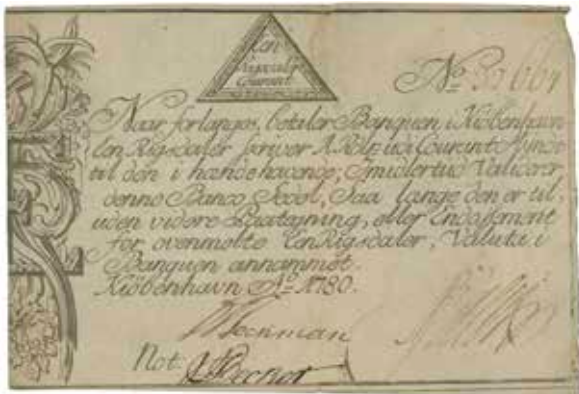 Een
Rigsdaler
Courant
No
Naar forlanges, betaler Banquen i Kiøbenhavn
Een Rigsdaler skriver 1 Rdlr. udi Courant Mynt
til den i hænde havende; Imidlertid Validerer
denne Banco Sedel, Saa længe den er til,
uden videre Paategning, eller Endossement
for ovenmelte Een Rigsdaler, Valuta i
Banquen annammet.
Kiøbenhavn Ao. 1780.
Not.